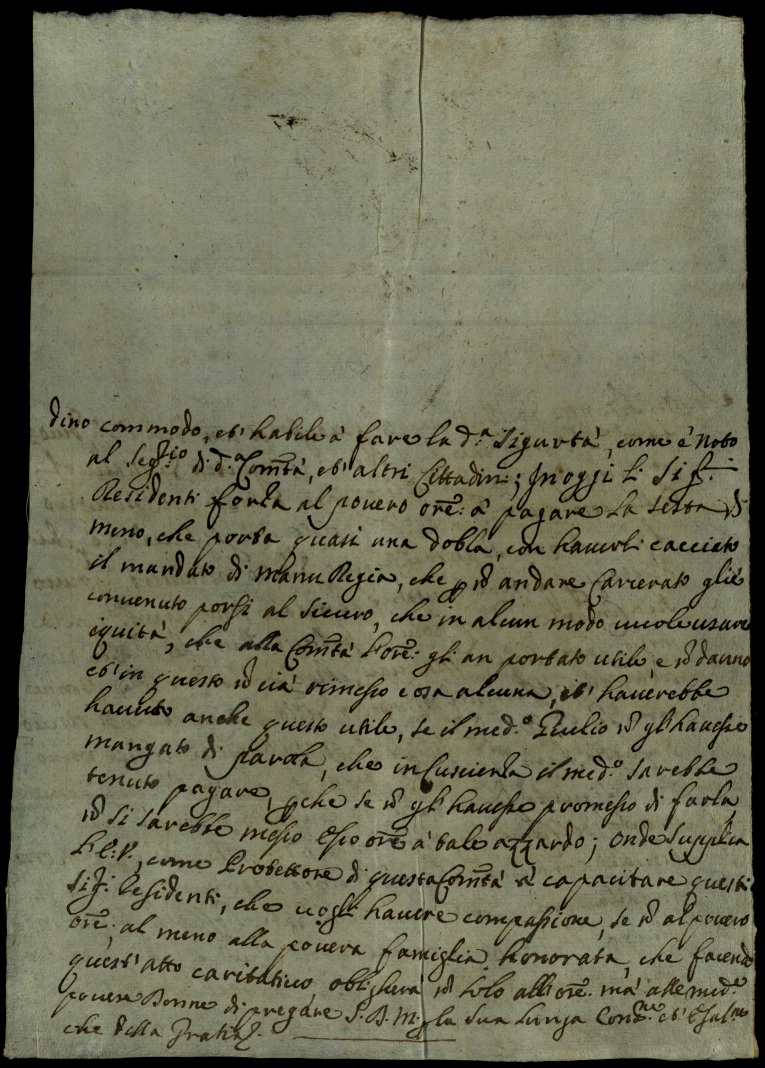 dino commodo, et' habile à fare la d.ª sigurtà, come è noto
al Seg.rio di d.ª Com̃tà, et' altri Cittadini; In oggi li Sig.ri
Residenti forza al povero ore: à pagare la sesta di
meno, che porta quasi una dobla, con haverli cacciato
il mandato di Manu Regia, che p nõ andare Carcerato gliè
convenuto porsi al sicuro, che in alcun modo vuole usare
equità, che alla Com̃tà l'ore: gli an portato utile, e nõ danno
et' in questo nõ ci à rimesso cosa alcuna, et' haverebbe
havuto anche questo utile, se il med.º Giulio nõ gl' havesse
mangato di parola, che in Cuscienza il med.º sarebbe
tenuto pagare, pche se nõ gl' havesse promesso di farla,
nõ si sarebbe messo esso ore à tale azzardo; onde supplica
l'E. V., come Protettore di questa Com̃tà à capacitare questi
Sig.ri Residenti, che vogli havere compassione, se nõ al povero
ore:, al meno alla povera famiglia honorata, che facendo
quest' atto caritativo obligherà nõ solo all' ore. mà alle med.e
povere Donne di pregare S. D. M. p la sua lunga Con.ne et' Esal.ne
che della Grat.a